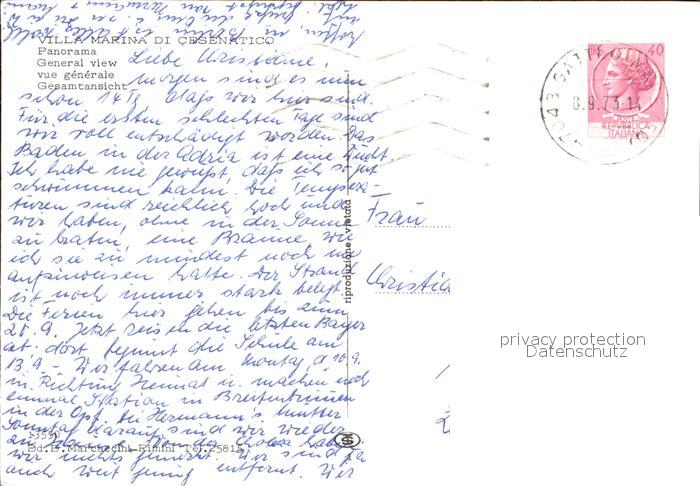 VILLA MARINA DI CESENATICO
Panorama
General view
vue générale
Gesamtansicht
Liebe Christiane,
morgen sind es nun
schon 14 Tg. daß wir hier sind.
Für die ersten schlechten Tage sind
wir voll entschädigt worden. Das
Baden in der Adria ist eine Wucht.
Ich habe nie gewußt, daß ich so gut
schwimmen kann. Die Tempera-
turen sind reichlich hoch und
wir haben, ohne in der Sonne
zu braten, eine Bräune, wie
ich sie zumindest noch nie
aufzuweisen hatte. Der Strand
ist noch immer stark belegt.
Die Ferien hier gehen bis zum
20.9. Jetzt reisen die letzten Bayer
ab, dort beginnt die Schule am
13.9. - Wir fahren am Montag, d. 10.9.
in Richtung Heimat u. machen noch
einmal Station in Breitenbrunn
in der Opf. bei Hermann's Mutter.
Sonntag darauf sind wir wieder
zu Hause. Von der Cholera haben
wir nichts gemerkt. Wir sind ja
auch weit genug entfernt. Wir
13550
Ed. E. Marchesini-Rimini Tel. 25812
riproduzione vietata
Frau
47043 GATTEO
8.9.73.14
40
REPVBBLICA
ITALIANA
privacy protection
Datenschutz